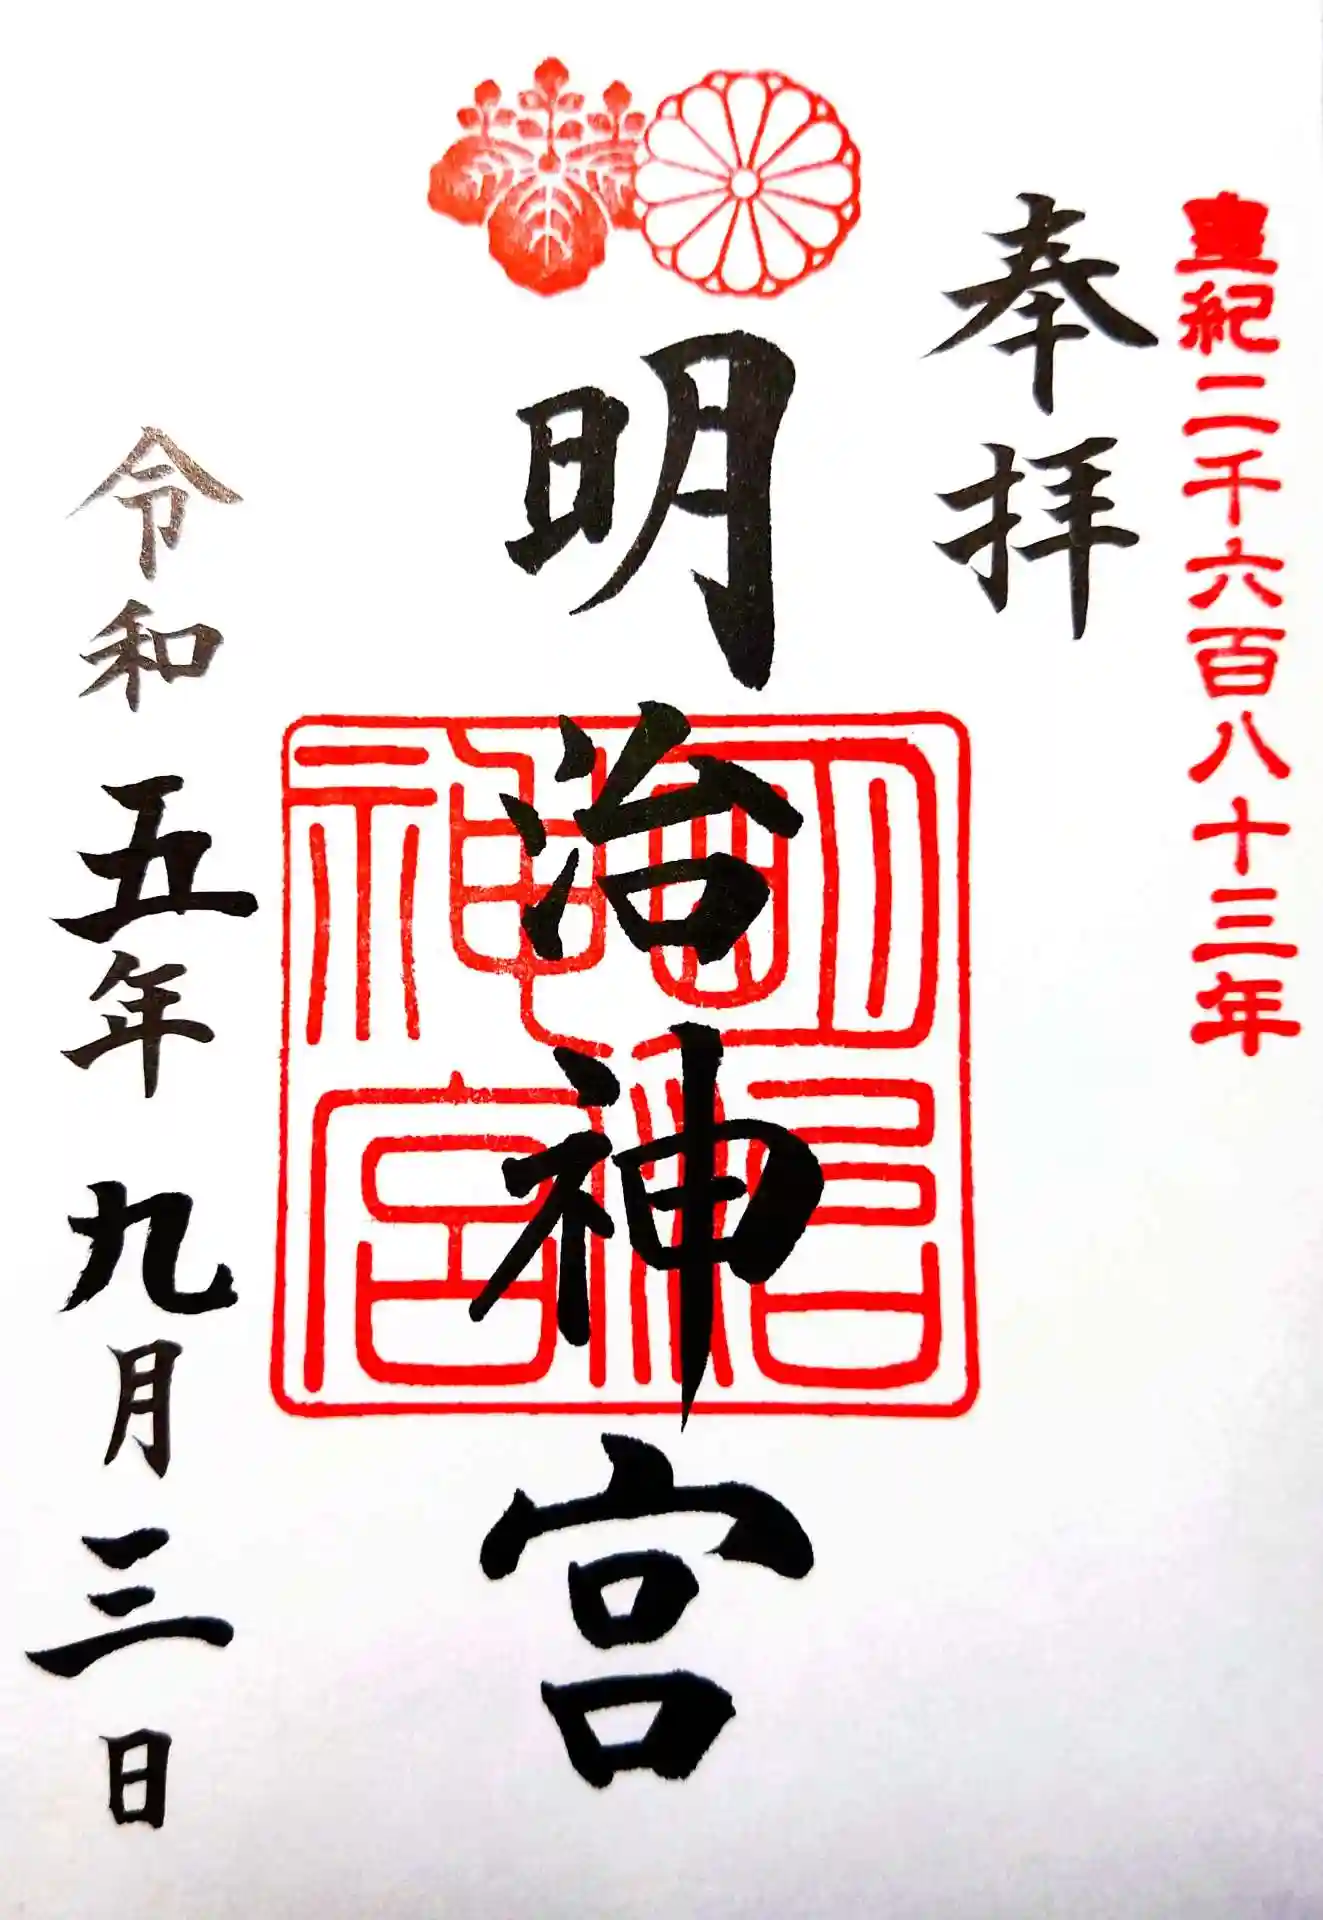 皇紀二千六百八十三年
奉拝
明治神宮
明治神宮
令和五年九月三日